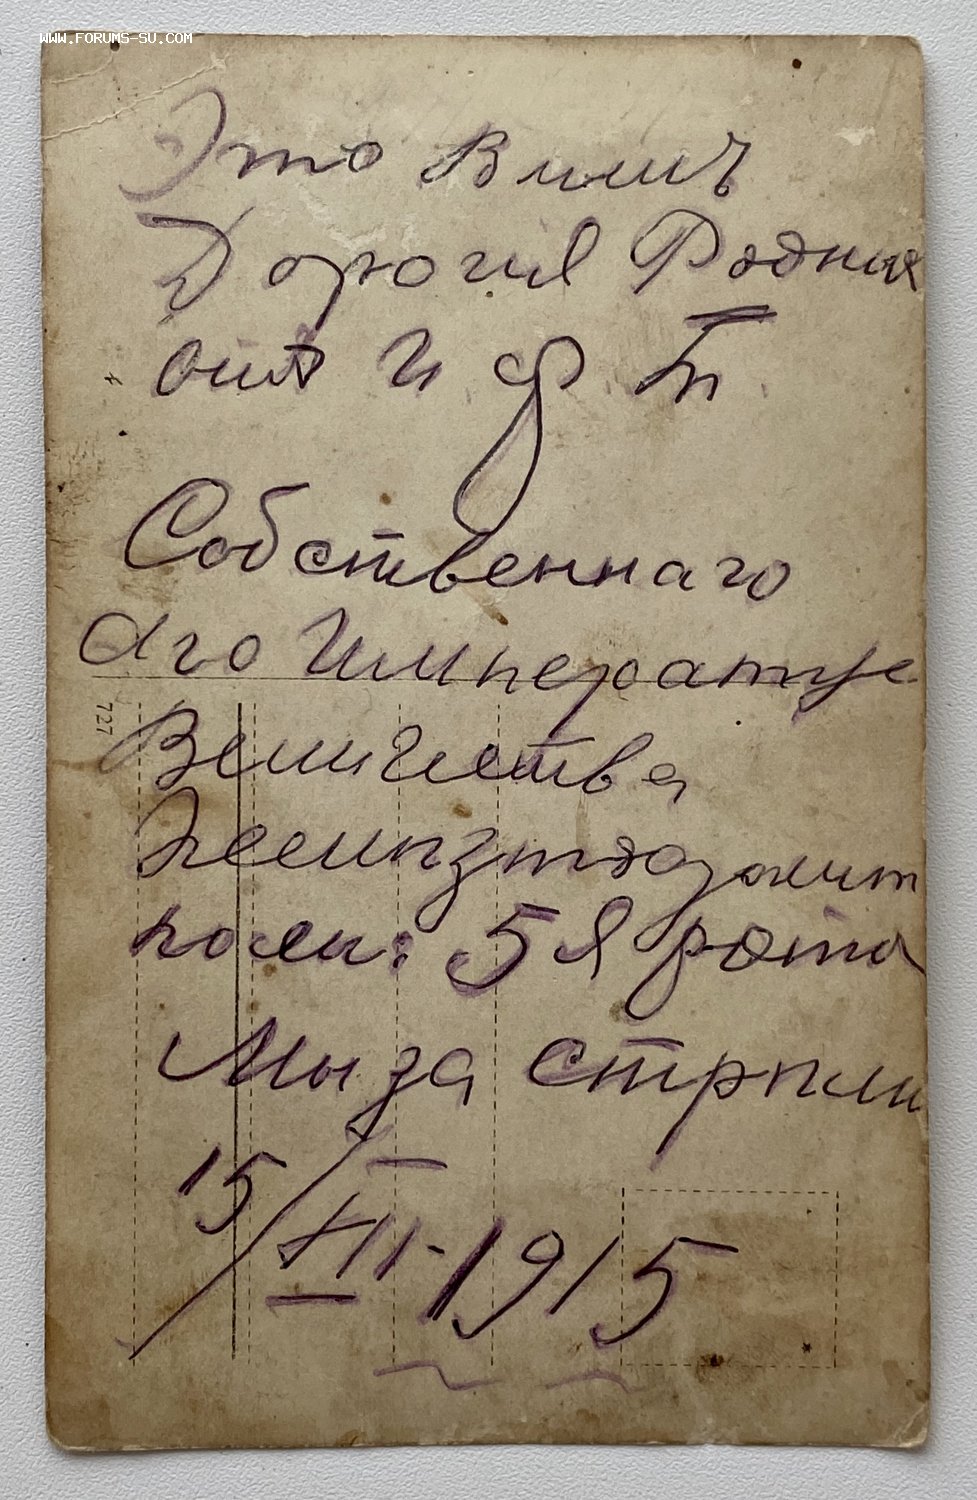 WWW.FORUMS-SU.COM
Это Вамъ
Дорогия Родныя
отъ И Ф Т
Собственнаго
Его Императ
Величества
полк: 5 я рота
Мыза
15/XII-1915
727